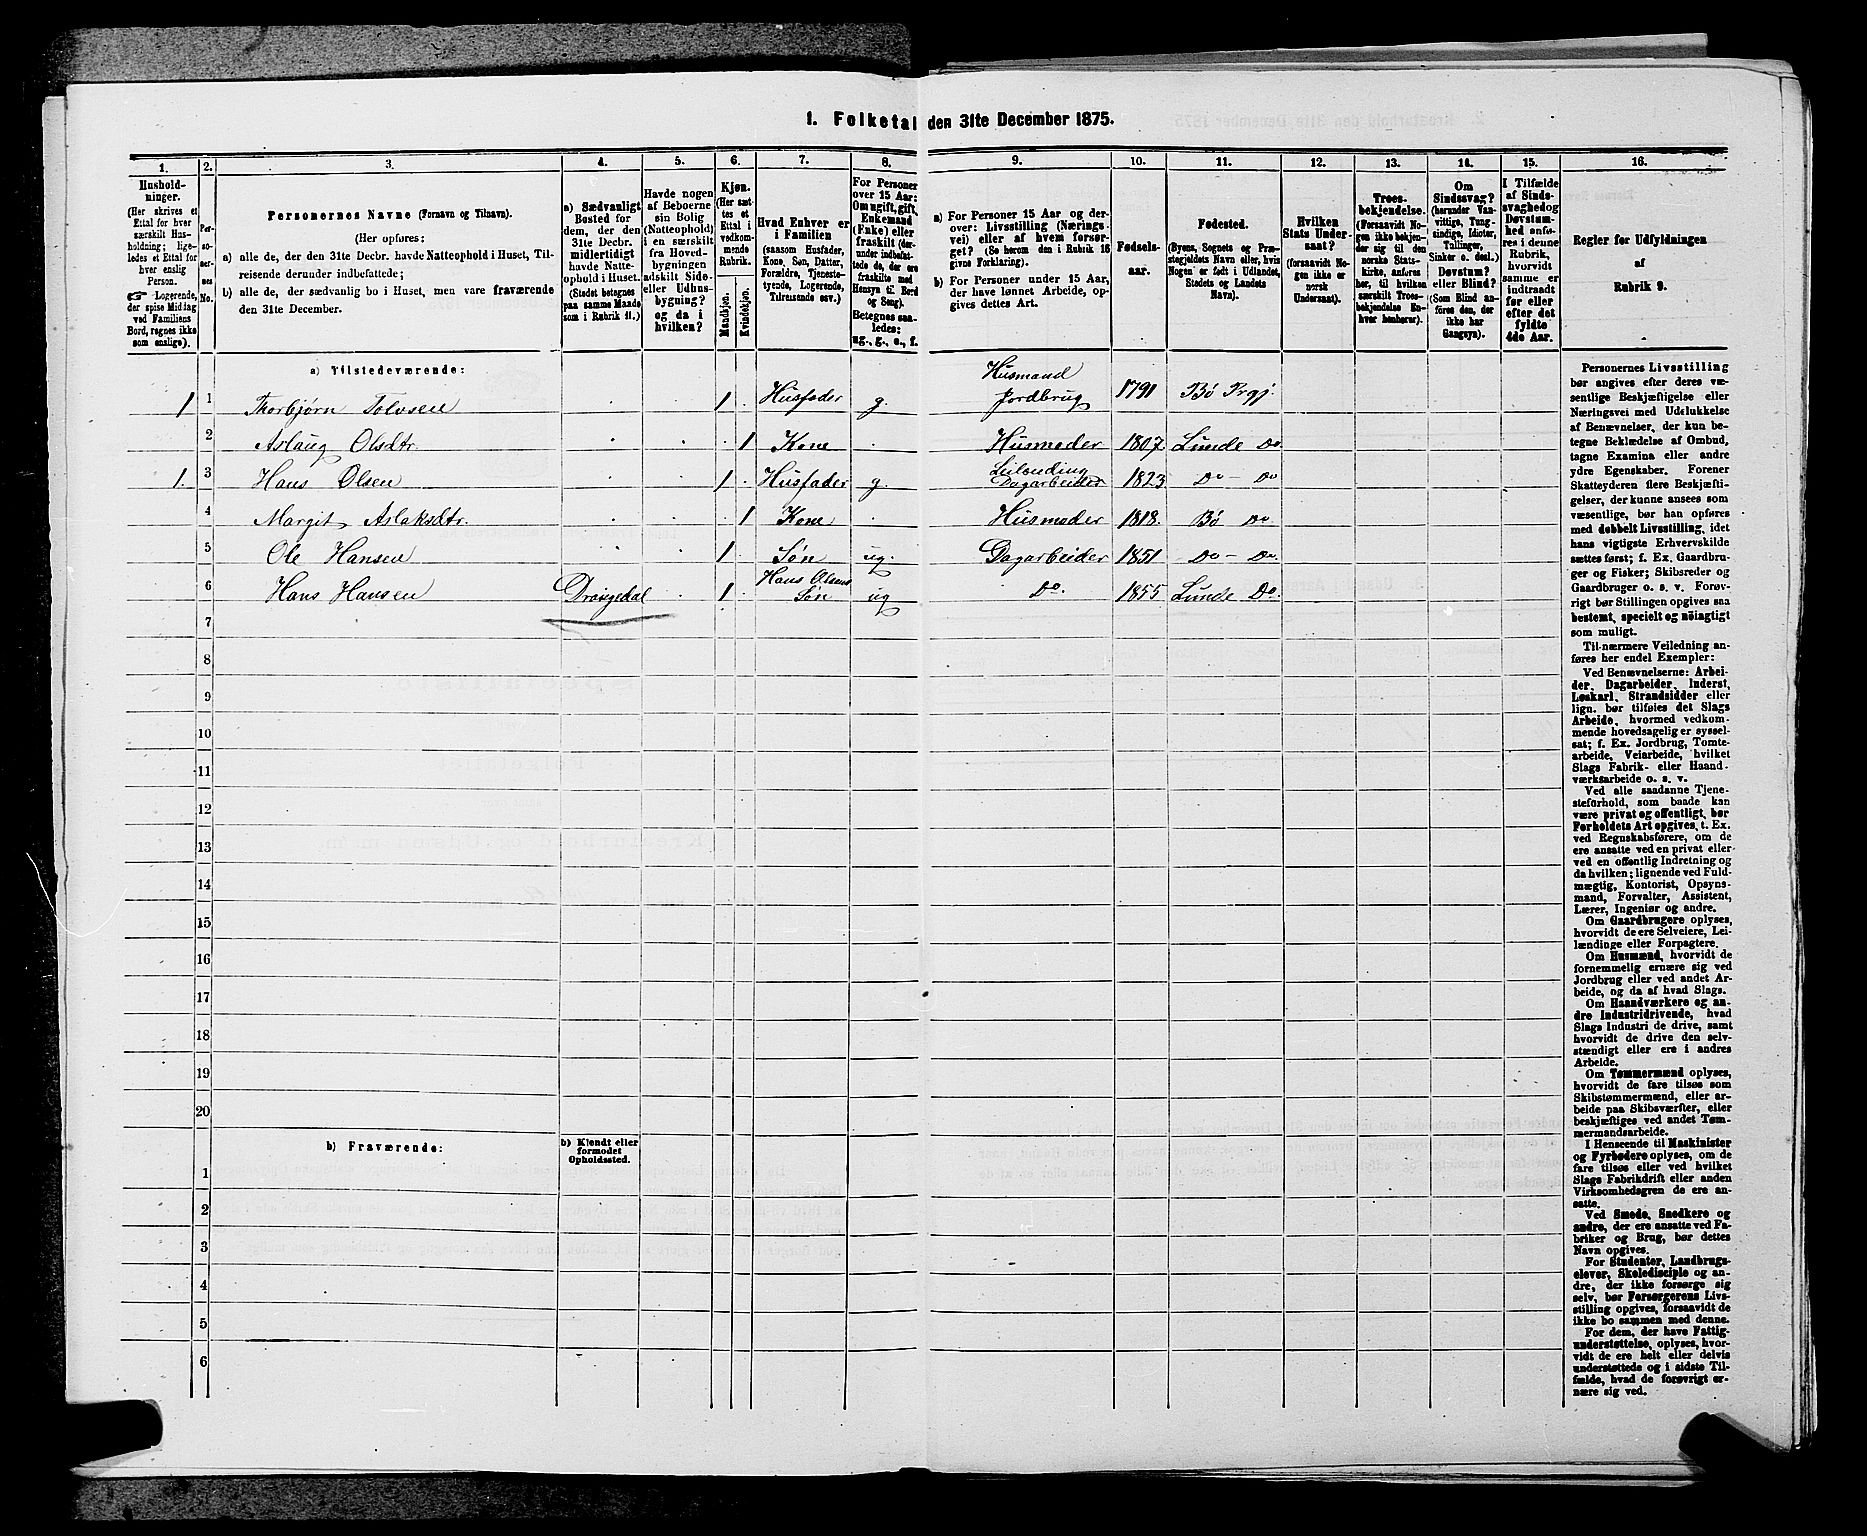 1. Folketal den 31te December 1875.
1. 2. 3. 4. 5. 6. 7. 8. 9. 10. 11. 12. 13. 14. 15. 16.
Husholdninger.
(Her skrives et
Ettal for hver
særskilt Husholdning;
ligeledes et Ettal for
hver enslig
Person.
☛ Logerende,
der spise Middag
ved Familiens
Bord, regnes ikke
som enslige).
Personernes No.
Personernes Navne (Fornavn og Tilnavn).
(Her opføres:
a) alle de, der den 31te Decbr. havde Natteophold i Huset, Tilreisende derunder indbefattede;
b) alle de, der sædvanlig bo i Huset, men vare fraværende
den 31te December.
a) Sædvanligt
Bosted for
dem, der den
31te Decbr.
midlertidigt
havde Natteophold
i Huset.
(Stedet betegnes
paa samme Maade
som i Rubrik 11.)
Havde nogen
af Beboerne
sin Bolig
(Natteophold)
i en særskilt
fra Hovedbygningen
adskilt Side-
eller Udhusbygning?
og da i
hvilken?
Kjøn.
(Her sættes
et
Ettal i
vedkommende
Rubrik.
Mandkjøn.
Kvindekjøn.
Hvad Enhver er
i Familien
(saasom Husfader,
Kone, Søn, Datter,
Forældre, Tjenestetyende,
Logerende,
Tilreisende osv.)
For Personer
over 15 Aar:
Om ugift, gift,
Enkemand
(Enke) eller
fraskilt (derunder
indbefattede
de, der ere
fraskilte med
Hensyn til Bord
og Seng).
Betegnes saaledes:
ug., g., e., f.
a) For Personer 15 Aar og derover:
Livsstilling (Næringsvei)
eller af hvem forsørget?
(Se herom den i Rubrik 16
givne Forklaring).
b) For Personer under 15 Aar,
der have lønnet Arbeide, opgives
dettes Art.
Fødselsaar.
Fødested.
(Byens, Sognets og Præstegjeldets
Navn eller, hvis
Nogen er født i Udlandet,
Stedets og Landets
Navn).
Hvilken
Stats Undersaat?
(forsaavidt Nogen
ikke er
norsk
Undersaat).
Troesbekjendelse.
(Forsaavidt Nogen
ikke bekjender
sig til den
norske Statskirke,
anføres
her, til hvilken
særskilt Troesbekjendelse
Enhver
henhører).
Om
Sindssvag?
(herunder Vanvittige,
Tungsindige,
Idioter,
Tullinger,
Sinker o. desl.)
Døvstum?
eller Blind?
(Som Blind anføres
den, der
ikke har
Gangsyn).
I Tilfælde
af Sindssvaghed
og
Døvstumhed
anføres
i denne
Rubrik,
hvorvidt
samme er
indtraadt
før eller
efter det
fyldte
4de Aar.
Regler for Udfyldningen
af
Rubrik 9.
a) Tilstedeværende:
1 1 Thorbjørn Tolvsen 1 Husfader g. Husmand Jordbrug 1791 Bø Prgj.
2 Aslaug Olsdtr. 1 Kone Husmoder 1807. Lunde Do
1. 3 Hans Olsen 1 Husfader g. Leilending Dagarbeider 1823 Do – Do
4 Margit Aslaksdtr. 1 Kone Husmoder 1818. Bø Do
5 Ole Hansen 1 Søn ug. Dagarbeider 1851 Do – Do.
6 Hans Hansen Drangedal 1 Hans Olsens Søn ug Do. 1855 Lunde Do.
7
8
9
10
11
12
13
14
15
16
17
18
19
20
b) Fraværende:
b) Kjendt eller
formodet
Opholdssted.
1
2
3
4
5
6
Personernes Livsstilling
bør angives efter deres væsentlige
Beskjæftigelse eller
Næringsvei med Udelukkelse
af Benævnelser, der kun betegne
Beklædelse af Ombud,
tagne Examina eller andre
ydre Egenskaber. Forener
Skatteyderen flere Beskjæftigelser,
der kunne ansees som
væsentlige, bør han opføres
med dobbelt Livsstilling, idet
hans vigtigste Erhvervskilde
sættes først; f. Ex. Gaardbruger
og Fisker; Skibsreder og
Gaardbruger o. s. v. Forøvrigt
bør Stillingen opgives saa
bestemt, specielt og nöiagtigt
som muligt.
Til nærmere Veiledning anføres
her endel Exempler:
Ved Benævnelserne: Arbeider,
Dagarbeider, Inderst,
Løskarl, Strandsidder eller
lign. bør tilføies det Slags
Arbeide, hvormed vedkommende
hovedsagelig er sysselsat;
f. Ex. Jordbrug, Tomtearbeide,
Veiarbeide, hvilket
Slags Fabrik- eller Haandværksarbeide
o. s. v.
Ved alle saadanne Tjenesteforhold,
som baade kan
være privat og offentligt, bør
Forholdets Art opgives, t. Ex.
ved Regnskabsførere, om de
ere ansatte ved en privat eller
ved en offentlig Indretning og
da hvilken; lignende ved Fuldmægtig,
Kontorist, Opsynsmand,
Forvalter, Assistent,
Lærer, Ingeniør og andre.
Om Gaardbrugere oplyses,
hvorvidt de ere Selveiere, Leilændinge
eller Forpagtere.
Om Husmænd, hvorvidt de
fornemmelig ernære sig ved
Jordbrug eller ved andet Arbeide,
og da af hvad Slags.
Om Haandværkere og andre
Industridrivende, hvad
Slags Industri de drive, samt
hvorvidt de drive den selvstændigt
eller ere i andres
Arbeide.
Om Tømmermænd oplyses,
hvorvidt de fare tilsøs som
Skibstømmermænd, eller arbeide
paa Skibsværfter, eller
beskjæftiges ved andet Tømmermandsarbeide.
I Henseende til Maskinister
og Fyrbødere oplyses, om de
fare tilsøs eller ved hvilket
Slags Fabrikdrift eller anden
Virksomhedsgren de ere ansatte.
Ved Smede, Snedkere og
andre, der ere ansatte ved Fabriker
og Brug, bør dettes
Navn opgives.
For Studenter, Landbrugselever,
Skoledisciple og andre,
der ikke forsørge sig
selv, bør Forsørgerens Livsstilling
opgives, forsaavidt de
ikke bo sammen med denne.
For dem, der have Fattigunderstøttelse,
oplyses, hvorvidt
de ere helt eller delvis
understøttede og i sidste Tilfælde,
hvad de forøvrigt ernære
sig ved.